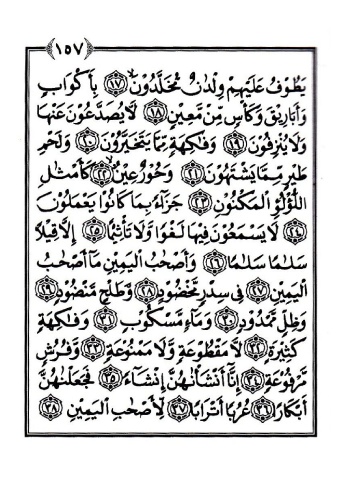 ١٥٧
يَطُوْفُ عَلَيْهِمْ وِلْدَانٌ مُّخَلَّدُوْنَ ۙ﴿١٧﴾ بِاَكْوَابٍ
وَّاَبَارِيْقَ وَكَاْسٍ مِّنْ مَّعِيْنٍ ﴿١٨﴾ لَّا يُصَدَّعُوْنَ عَنْهَا
وَلَا يُنْزِفُوْنَ ﴿١٩﴾ وَفَاكِهَةٍ مِّمَّا يَتَخَيَّرُوْنَ ﴿٢٠﴾ وَلَحْمِ
طَيْرٍ مِّمَّا يَشْتَهُوْنَ ﴿٢١﴾ وَحُوْرٌ عِيْنٌ ﴿٢٢﴾ كَاَمْثَالِ
اللُّؤْلُؤِ الْمَكْنُوْنِ ﴿٢٣﴾ جَزَآءً بِمَا كَانُوْا يَعْمَلُوْنَ
﴿٢٤﴾ لَا يَسْمَعُوْنَ فِيْهَا لَغْوًا وَّلَا تَاْثِيْمًا ﴿٢٥﴾ اِلَّا قِيْلًا
سَلٰمًا سَلٰمًا ﴿٢٦﴾ وَاَصْحٰبُ الْيَمِيْنِ مَآ اَصْحٰبُ
الْيَمِيْنِ ﴿٢٧﴾ فِيْ سِدْرٍ مَّخْضُوْدٍ ﴿٢٨﴾ وَّطَلْحٍ مَّنْضُوْدٍ ﴿٢٩﴾
وَّظِلٍّ مَّمْدُوْدٍ ﴿٣٠﴾ وَّمَآءٍ مَّسْكُوْبٍ ﴿٣١﴾ وَّفَاكِهَةٍ
كَثِيْرَةٍ ﴿٣٢﴾ لَّا مَقْطُوْعَةٍ وَّلَا مَمْنُوْعَةٍ ﴿٣٣﴾ وَّفُرُشٍ
مَّرْفُوْعَةٍ ﴿٣٤﴾ اِنَّآ اَنْشَاْنٰهُنَّ اِنْشَآءً ﴿٣٥﴾ فَجَعَلْنٰهُنَّ
اَبْكَارًا ﴿٣٦﴾ عُرُبًا اَتْرَابًا ﴿٣٧﴾ لِّاَصْحٰبِ الْيَمِيْنِ ﴿٣٨﴾